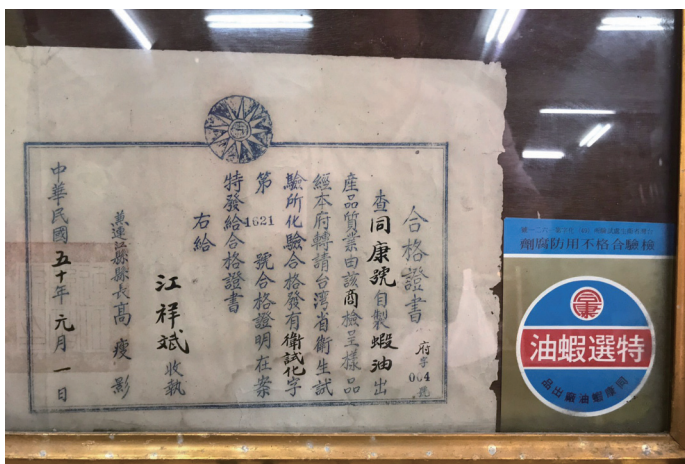 合格證書
府字004號
查同康號自製蝦油出
產品質業由該商檢呈樣品
經本府轉請台湾省衛生試
驗所化驗合格發有衛試化字
第1621號合格證明在案
特發給合格證書
右給
江祥斌收執
兼連江縣縣長高瘦影
中華民國五十年元月一日
檢驗合格不用防腐劑
特選蝦油
同康蝦油廠出品